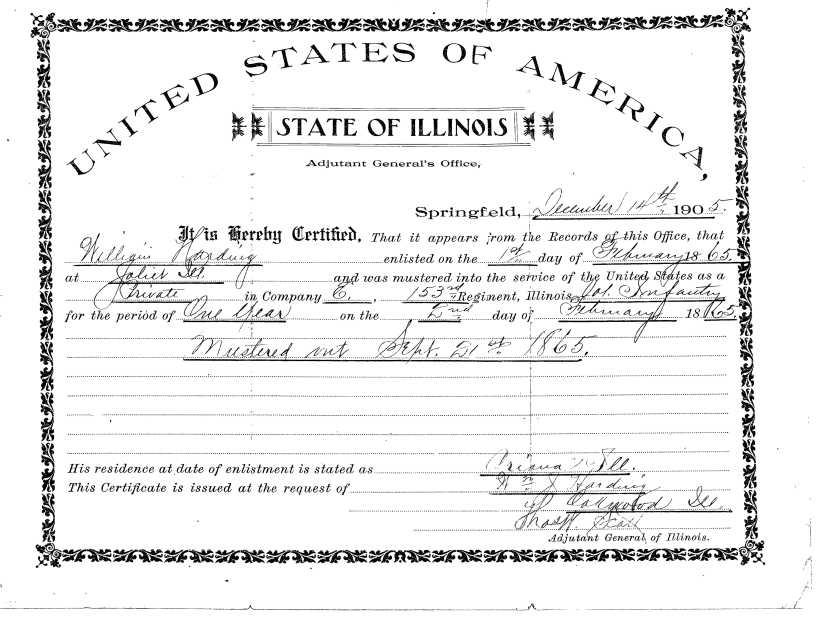 UNITED STATES OF AMERICA,
STATE OF ILLINOIS
Adjutant General's Office,
Springfeld, December 14th 1905.
It is Hereby Certified, That it appears from the Records of this Office, that
William Harding enlisted on the 1st day of February 1865.
at Joliet Ill. and was mustered into the service of the United States as a
Private in Company E, 153rd Regiment, Illinois Vol. Infantry
for the period of One Year on the 2nd day of February 1865.
Mustered out Sept. 21st 1865.
His residence at date of enlistment is stated as Ill.
This Certificate is issued at the request of Wm J Harding
of Oakwood Ill.
Adjutant General of Illinois.